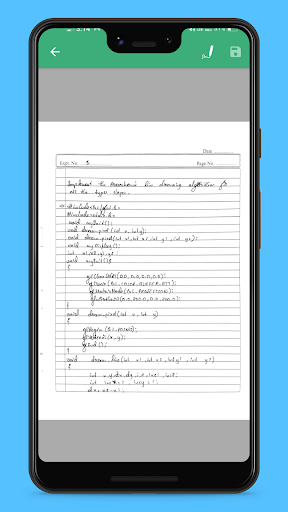 3:14
Date
Expt. No 3
Page No
Implement the Bresenham's line drawing algorithm for
all the types slope.
#include<GL/glut.h>
#include<stdio.h>
void myInit();
void draw_pixel(int x, int y);
void draw_pixel(int x1, int x2, int y1, int y2);
void myDisplay();
int x1, x2, y1, y2;
void myInit()
{
glClearColor(0.0, 0.0, 0.0, 0.0);
glMatrixMode(GL_PROJECTION);
}
void draw_pixel(int x, int y)
{
glBegin(GL_POINTS);
glVertex2i(x, y);
glEnd();
}
void draw_line(int x1, int x2, int y1, int y2)
{
int x, y, dx, dy, i, e
int
dx = x2-x1;